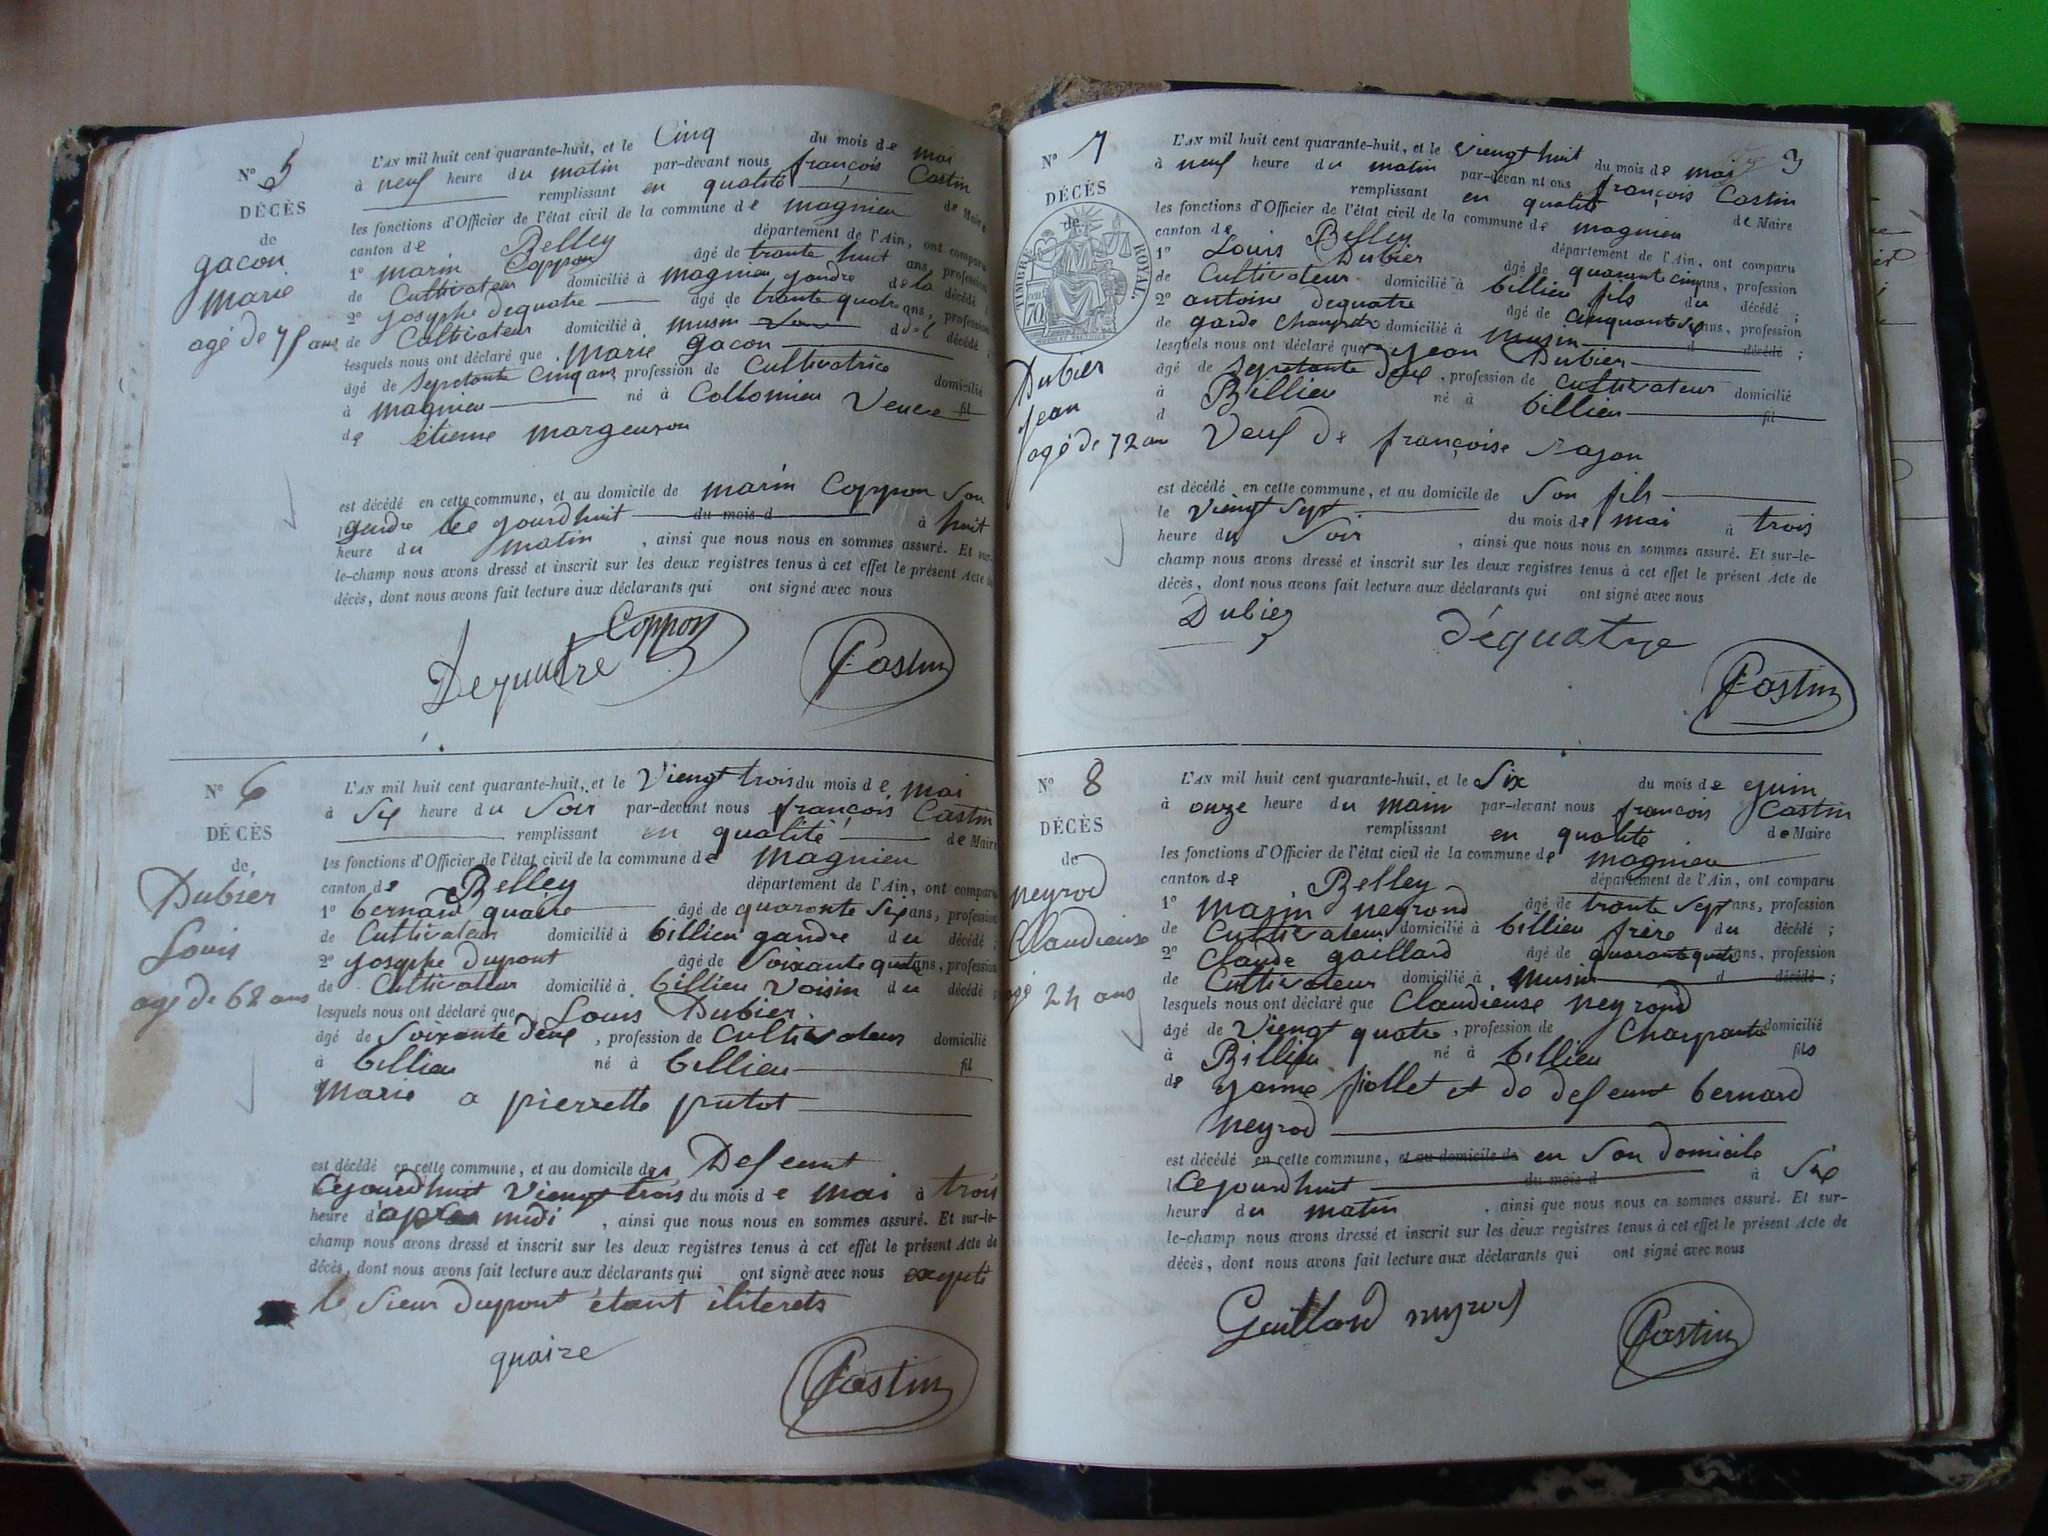 N° 5
DÉCÈS
de
gacon
marie
agé de 75 ans
L'AN mil huit cent quarante-huit, et le Cinq du mois de mai
à neuf heure du matin par-devant nous françois Castin
remplissant en qualité de Maire
les fonctions d'Officier de l'état civil de la commune de magnieu
canton de Belley département de l'Ain, ont comparu
1° marin Coppon âgé de trante huit ans, profession
de Cultivateur domicilié à magnieu gendre de la décédé
2° Josephe dequatre âgé de trante quatre ans, profession
de Cultivateur domicilié à musin décédé ;
lesquels nous ont déclaré que marie gacon
âgé de Septante Cinq ans profession de Cultivatrice domicilié
à magnieu né à Collomieu Veuve fil
de étienne
est décédé en cette commune, et au domicile de marin Coppon Son
gendre le jourdhuit du mois d à huit
heure du matin, ainsi que nous nous en sommes assuré. Et sur-
le-champ nous avons dressé et inscrit sur les deux registres tenus à cet effet le présent Acte de
décès, dont nous avons fait lecture aux déclarants qui ont signé avec nous
Dequatre Coppon Castin
N° 6
DÉCÈS
de
Dubier
Louis
agé de 62 ans
L'AN mil huit cent quarante-huit, et le Viengt trois du mois de mai
à Six heure du Soir par-devant nous françois Castin
remplissant en qualité de Maire
les fonctions d'Officier de l'état civil de la commune de magnieu
canton de Belley département de l'Ain, ont comparu
1° bernard quaire âgé de quarante Six ans, profession
de Cultivateur domicilié à billieu gandre du décédé ;
2° Josephe dupont âgé de Soixante quatre ans, profession
de Cultivateur domicilié à billieu Voisin du décédé ;
lesquels nous ont déclaré que Louis Dubier
âgé de Soixante deux, profession de Cultivateur domicilié
à billieu né à billieu fil
marié a pierrette putot
est décédé en cette commune, et au domicile du Defeunt
le Cejourdhuit Viengt trois du mois de mai à trois
heure d'apres midi, ainsi que nous nous en sommes assuré. Et sur-le-
champ nous avons dressé et inscrit sur les deux registres tenus à cet effet le présent Acte de
décès, dont nous avons fait lecture aux déclarants qui ont signé avec nous exepté
le Sieur dupont étant iliterets
quaire Castin
3
N° 7
DÉCÈS
de
TIMBRE ROYAL
70
Dubier
Jean
agé de 72 an
L'AN mil huit cent quarante-huit, et le Viengt huit du mois de mai
à neuf heure du matin par-devan nt ous françois Castin
remplissant en qualité de Maire
les fonctions d'Officier de l'état civil de la commune de magnieu
canton de Belley département de l'Ain, ont comparu
1° Louis Dubier âgé de quarante cinq ans, profession
de Cultivateur domicilié à billieu fils du décédé ;
2° antoine dequatre âgé de cinquante Six ans, profession
de garde Champetre domicilié à Musin d décédé ;
lesquels nous ont déclaré que Jean Dubier
âgé de Septante deux, profession de Cultivateur domicilié
à Billieu né à billieu fil
d Veuf de françoise
est décédé en cette commune, et au domicile de Son fils
le Viengt Sept du mois de mai à trois
heure du Soir, ainsi que nous nous en sommes assuré. Et sur-le-
champ nous avons dressé et inscrit sur les deux registres tenus à cet effet le présent Acte de
décès, dont nous avons fait lecture aux déclarants qui ont signé avec nous
Dubier déquatre Castin
N° 8
DÉCÈS
de
neyrod
Claudieuse
agé 24 ans
L'AN mil huit cent quarante-huit, et le Six du mois de juin
à onze heure du matin par-devant nous françois Castin
remplissant en qualité de Maire
les fonctions d'Officier de l'état civil de la commune de magnieu
canton de Belley département de l'Ain, ont comparu
1° Marin neyrond âgé de trante Sept ans, profession
de Cultivateur domicilié à billieu frère du décédé ;
2° Claude gaillard âgé de quarante quatre ans, profession
de Cultivateur domicilié à Musin d décédé ;
lesquels nous ont déclaré que Claudieuse neyrond
âgé de Viengt quatre, profession de Charpante domicilié
à Billieu né à billieu fils
de Janne fiollet et de defeunt bernard
neyrod
est décédé en cette commune, et au domicile de en Son domicile
le Cejourdhuit du mois d à Six
heure du matin, ainsi que nous nous en sommes assuré. Et sur-
le-champ nous avons dressé et inscrit sur les deux registres tenus à cet effet le présent Acte de
décès, dont nous avons fait lecture aux déclarants qui ont signé avec nous
Gaillard neyrod Castin